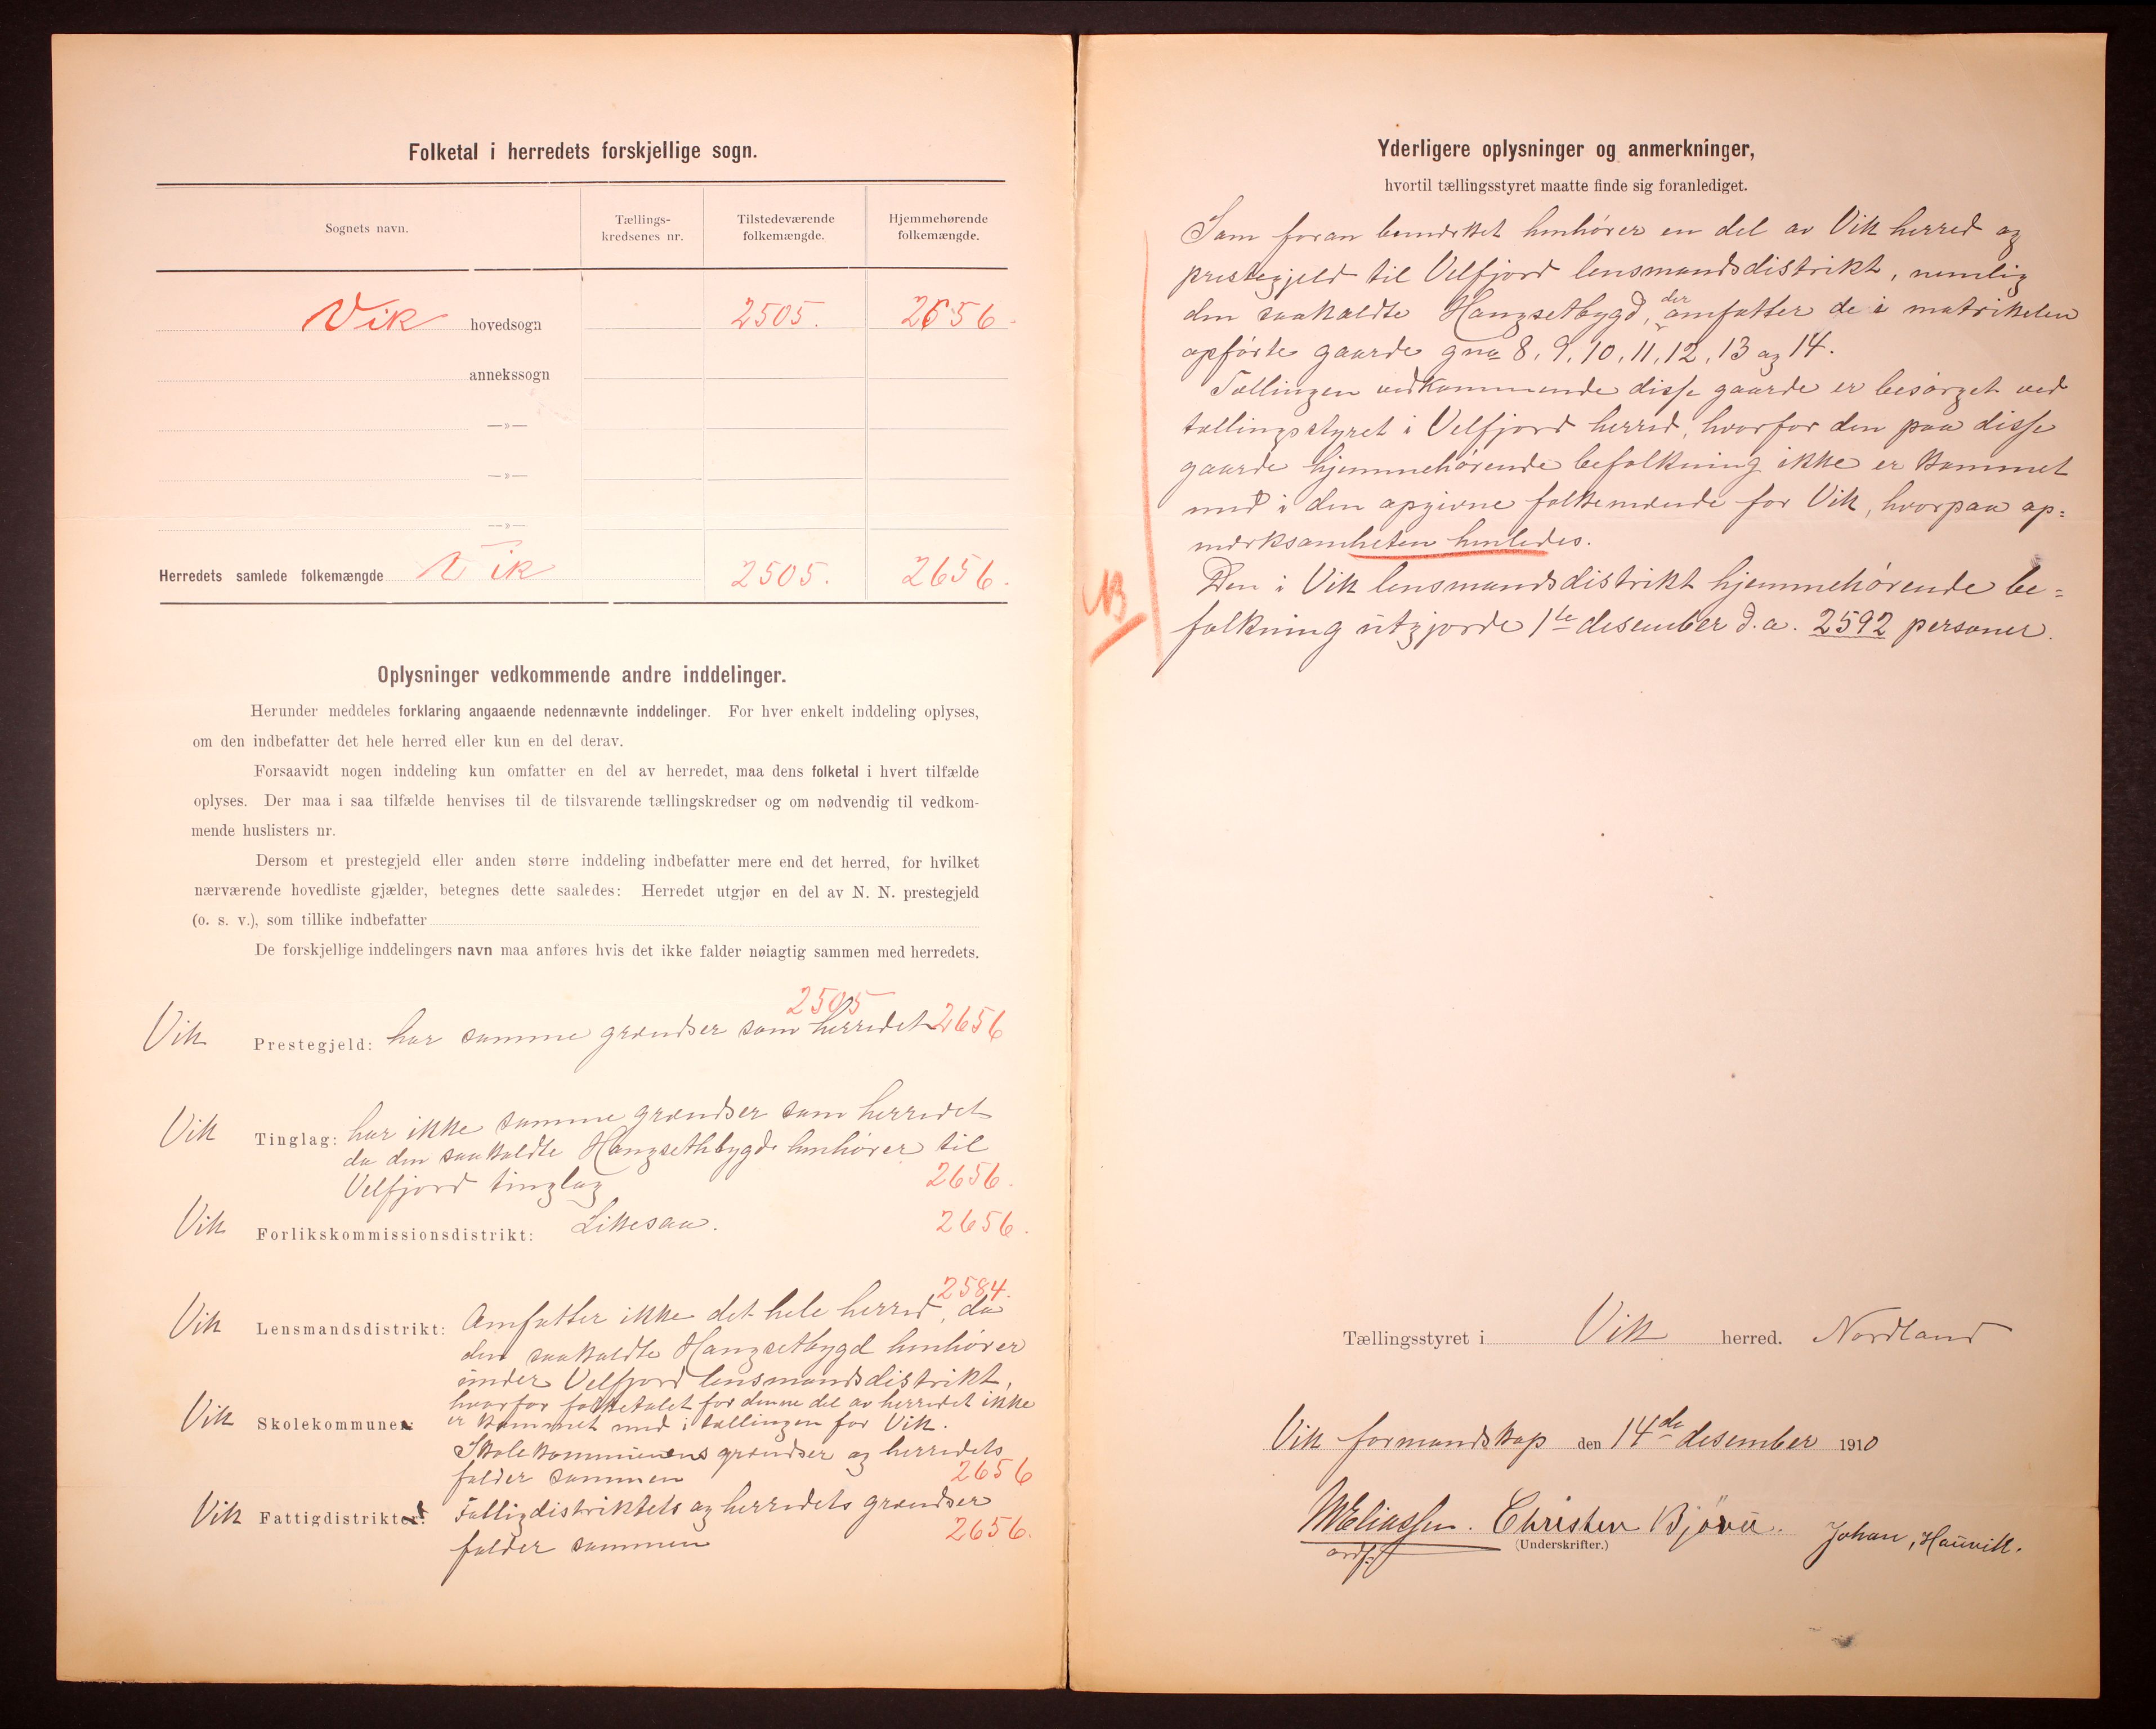 Folketal i herredets forskjellige sogn.
Sognets navn.
Tællings-
kredsenes nr.
Tilstedeværende
folkemængde.
Hjemmehørende
folkemængde.
Vik hovedsogn 2505. 2656.
annekssogn
—»—
—»—
—»—
Herredets samlede folkemængde Vik 2505. 2656.
Oplysninger vedkommende andre inddelinger.
Herunder meddeles forklaring angaaende nedennævnte inddelinger. For hver enkelt inddeling oplyses,
om den indbefatter det hele herred eller kun en del derav.
Forsaavidt nogen inddeling kun omfatter en del av herredet, maa dens folketal i hvert tilfælde
oplyses. Der maa i saa tilfælde henvises til de tilsvarende tællingskredser og om nødvendig til vedkom-
mende huslisters nr.
Dersom et prestegjeld eller anden større inddeling indbefatter mere end det herred, for hvilket
nærværende hovedliste gjælder, betegnes dette saaledes: Herredet utgjør en del av N. N. prestegjeld
(o. s. v.), som tillike indbefatter
De forskjellige inddelingers navn maa anføres hvis det ikke falder nøiagtig sammen med herredets.
2505
Vik Prestegjeld: har samme grændser som herredet 2656
Vik Tinglag: har ikke samme grændser som herredet
da den saakaldte Hangsethbygd henhører til
Velfjord tinglag 2656.
Vik Forlikskommissionsdistrikt: Likesaa. 2656.
2584.
Vik Lensmandsdistrikt: Omfatter ikke det hele herred, da
den saakaldte Hangsetbygd henhører
under Velfjord lensmandsdistrikt,
hvorfor folketalet for denne del av herredet ikke
Vik Skolekommuner: er kommet med i tællingen for Vik.
Skolekommunens grændser og herredets
falder sammen 2656
Vik Fattigdistrikter: Fattigdistriktets og herredets grændser
falder sammen 2656.
Yderligere oplysninger og anmerkninger,
hvortil tællingsstyret maatte finde sig foranlediget.
Som foran bemerket henhører en del av Vik herred og
prestegjeld til Velfjord lensmandsdistrikt, nemlig
den saakaldte Hangsetbygd, der omfatter de i matrikelen
opførte gaarde gno 8, 9, 10, 11, 12, 13 og 14.
Tællingen vedkommende disse gaarde er besørget ved
tællingsstyret i Velfjord herred, hvorfor den paa disse
gaarde hjemmehørende befolkning ikke er kommet
med i den opgivne folkemængde for Vik, hvorpaa op=
merksomheten henledes.
NB
Den i Vik lensmandsdistrikt hjemmehørende be=
folkning utgjorde 1ste desember d.a. 2592 personer.
Tællingsstyret i Vik herred. Nordland
Vik formandskap den 14de desember 1910
MEliassen. Christen Bjørn. Johan, Hauvik.
ordf. (Underskrifter.)